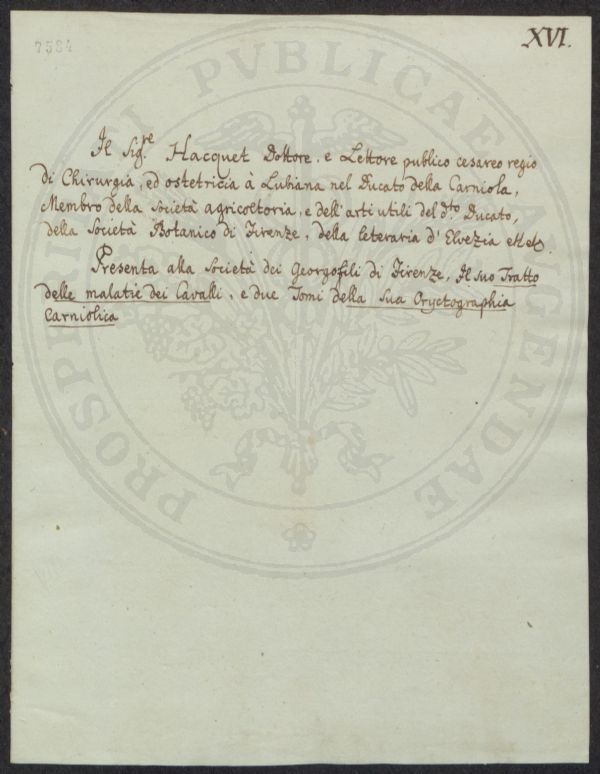 7584
XVI.
Il Sig.re Hacquet Dottore, e Lettore publico cesareo regio
di Chirurgia, ed ostetricia à Lubiana nel Ducato della Carniola,
Membro della Società agricoltoria, e dell'arti utili del d.to Ducato,
della Società Botanico di Firenze, della leteraria d'Elvezia
Presenta alla Società dei Georgofili di Firenze, Il suo Tratto
delle malatie dei Cavalli, e due Tomi della Sua Oryctographia
Carniolica
PROSPERITATI PVBLICAE AVGENDAE